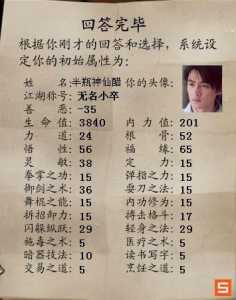 回答完毕
根据你刚才的回答和选择，系统设
定你的初始属性为：
姓 名：半瓶神仙醋 你的头像：
江湖称号：无名小卒
善 恶：-35
生 命 值：3840 内 力 值：201
力 道：24 根 骨：52
悟 性：56 福 缘：65
灵 敏：38 定 力：15
拳掌之功：15 弹指之力：15
御剑之术：36 耍刀之法：15
舞棍之能：15 内功修为：15
拆招卸力：15 搏击格斗：17
闪躲纵跃：29 轻身之法：29
施毒之术：5 医疗之术：5
暗器技法：10 读书写字：5
交易之道：5 烹饪之道：5
5